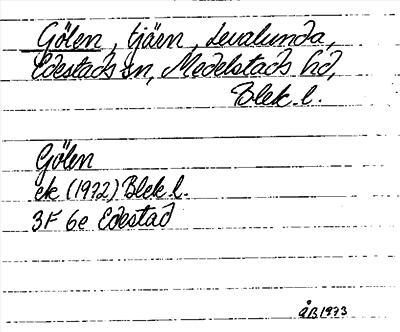 Gölen, tjäen, Levalunda,
Edestads sn, Medelstads hd,
Blek. l.
Gölen
ek (1972) Blek. l.
3F 6e Edestad
ÅB 1973